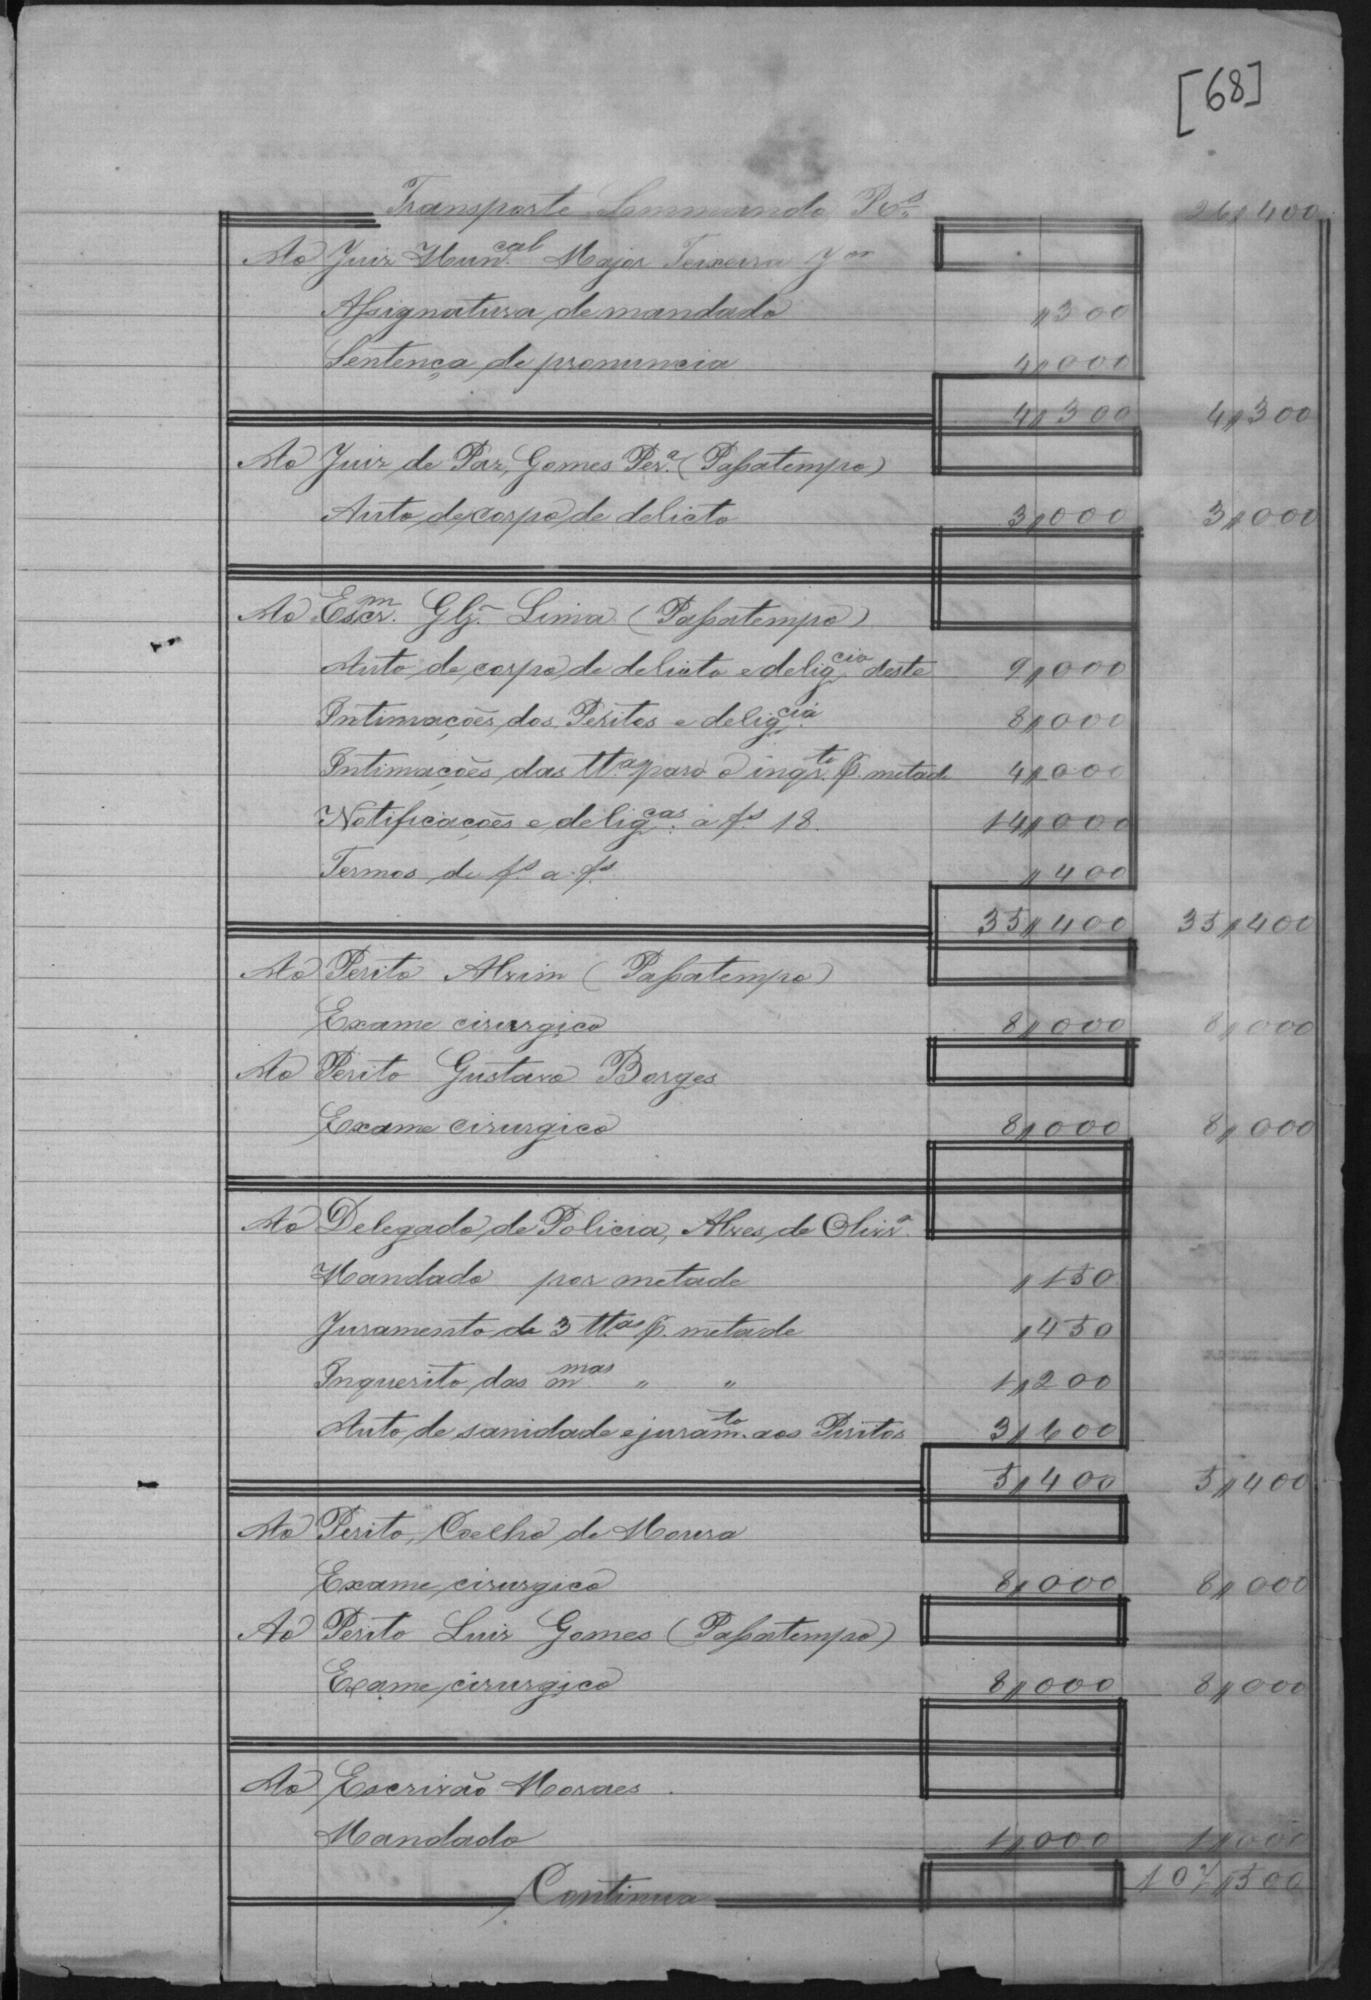 [68]
Transporte Sommando Rs. 26,,400
Ao Juiz Mun.cal Major Teixeira Jor
Assignatura de mandado ,,300
Sentença de pronuncia 4,,000
4,,300 4,,300
Ao Juiz de Paz, Gomes Per.a (Passatempo)
Auto de corpo de delicto 3,,000 3,,000
Ao Escr.m Lima (Passatempo)
Auto de corpo de delicto e delig.cia deste 9,,000
Intimações dos Peritos e delig.cia 8,,000
Intimações das tt.as para o inqr.to p. metade 4,,000
Notificações e delig.cas a fs. 18. 14,,000
Termos de fs. a fs. ,,400
35,,400 35,,400
Ao Perito Alvim (Passatempo)
Exame cirurgico 8,,000 8,,000
Ao Perito Gustavo Borges
Exame cirurgico 8,,000 8,,000
Ao Delegado de Policia, Alves de Olivr.a
Mandado por metade ,,150
Juramento de 3 tt.as p. metade ,,450
Inquerito das m.mas " " 1,,200
Auto de sanidade e juram.to aos Peritos 3,,600
5,,400 5,,400
Ao Perito, Coelho de Moura
Exame cirurgico 8,,000 8,,000
Ao Perito Luiz Gomes (Passatempo)
Exame cirurgico 8,,000 8,,000
Ao Escrivão Moraes
Mandado 1,,000 1,,000
Continua 107,,500